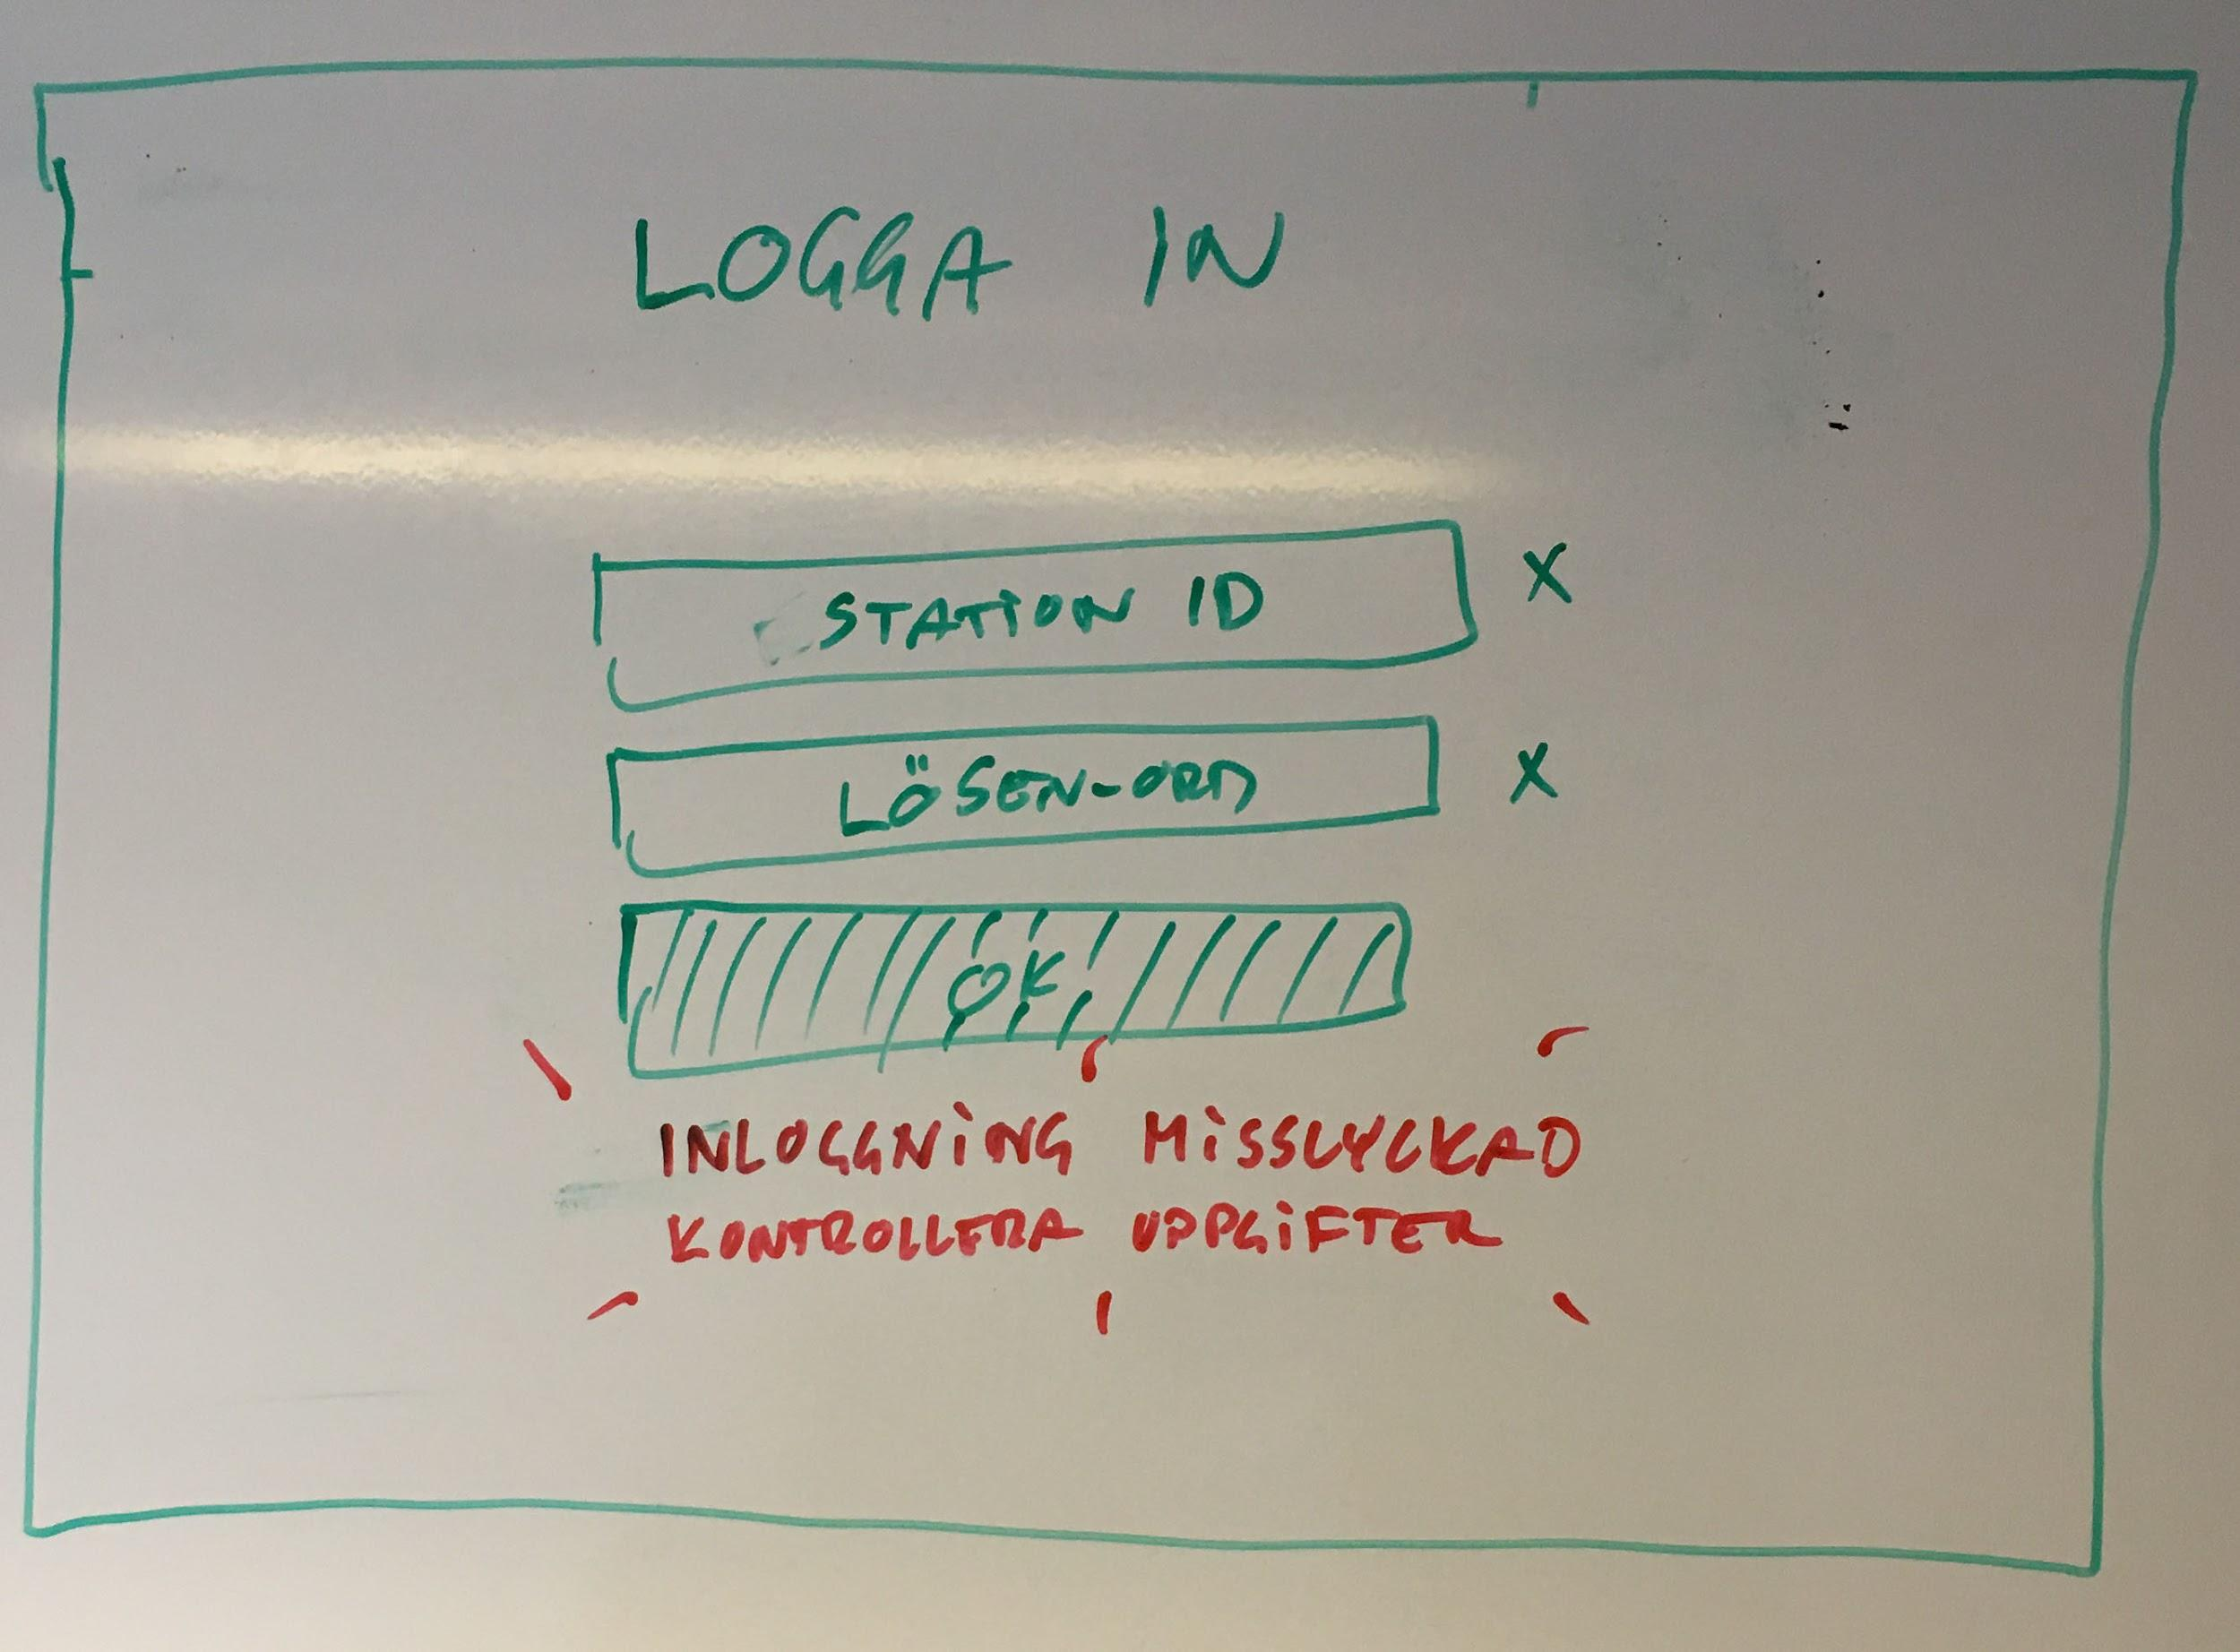 LOGGA IN
STATION ID X
LÖSEN-ORD X
OK
INLOGGNING MISSLYCKAD
KONTROLLERA UPPGIFTER